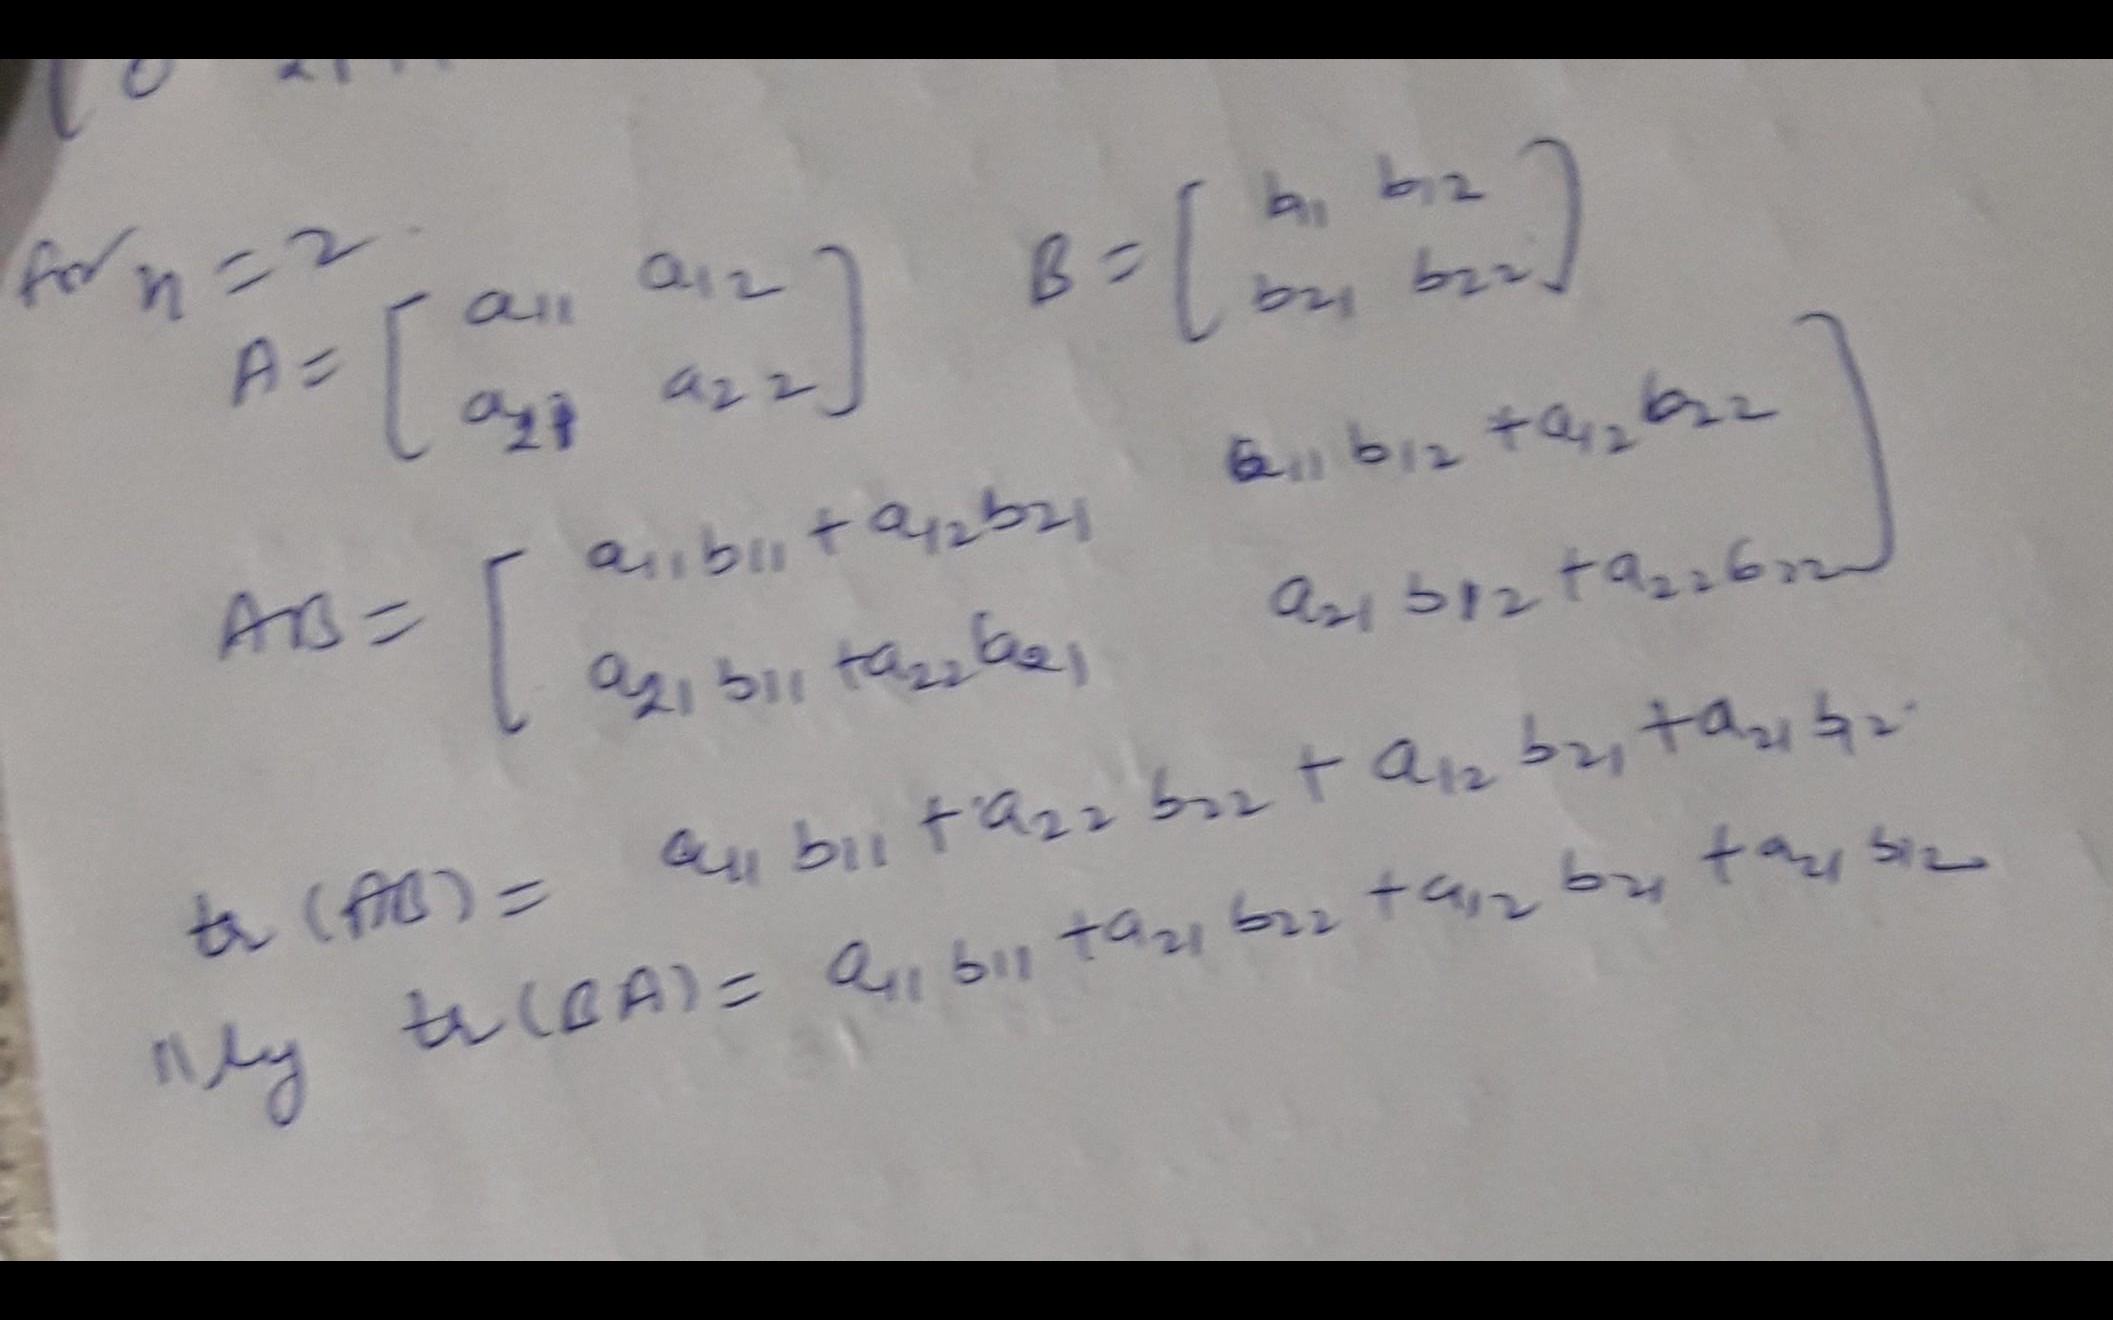 for n = 2
A = [ a11 a12
a21 a22 ]
B = [ b11 b12
b21 b22 ]
AB = [ a11 b11 + a12 b21 a11 b12 + a12 b22
a21 b11 + a22 b21 a21 b12 + a22 b22 ]
tr (AB) = a11 b11 + a22 b22 + a12 b21 + a21 b12
111ly tr (BA) = a11 b11 + a21 b22 + a12 b21 + a21 b12